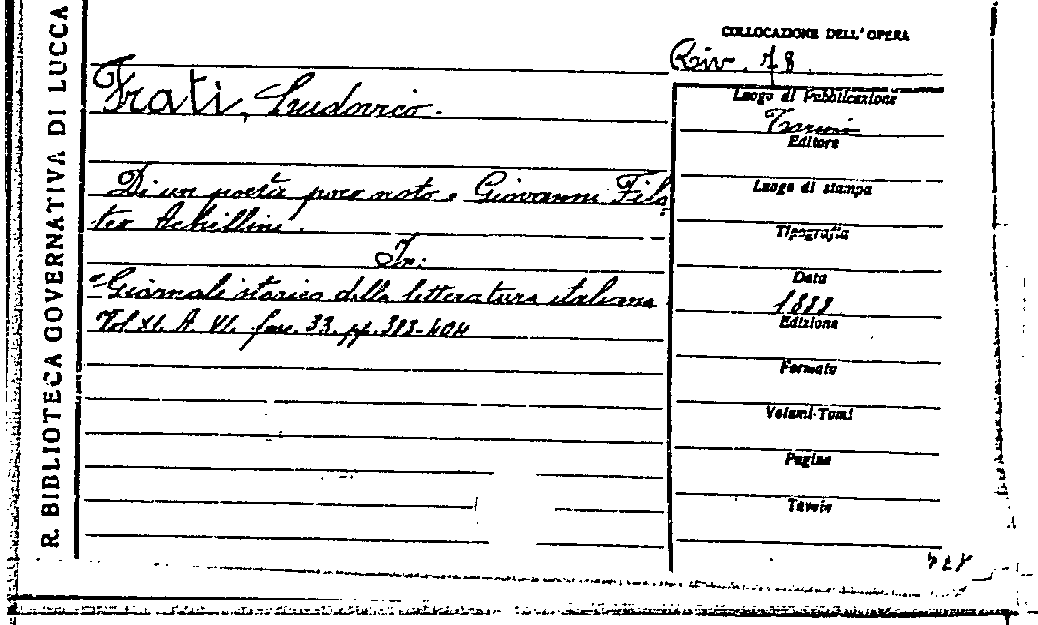 R. BIBLIOTECA GOVERNATIVA DI LUCCA
COLLOCAZIONE DELL' OPERA
Riv. 78
Frati, Ludovico.
Di un poeta poco noto: Giovanni Filo
teo Achillini.
In:
"Giornale storico della letteratura italiana"
Vol XI. A. VI. fasc. 33. pp. 383-404
Luogo di Pubblicazione
Torino
Editore
Luogo di stampa
Tipografia
Data
1888
Edizione
Formato
Volumi-Tomi
Pagine
Tavole